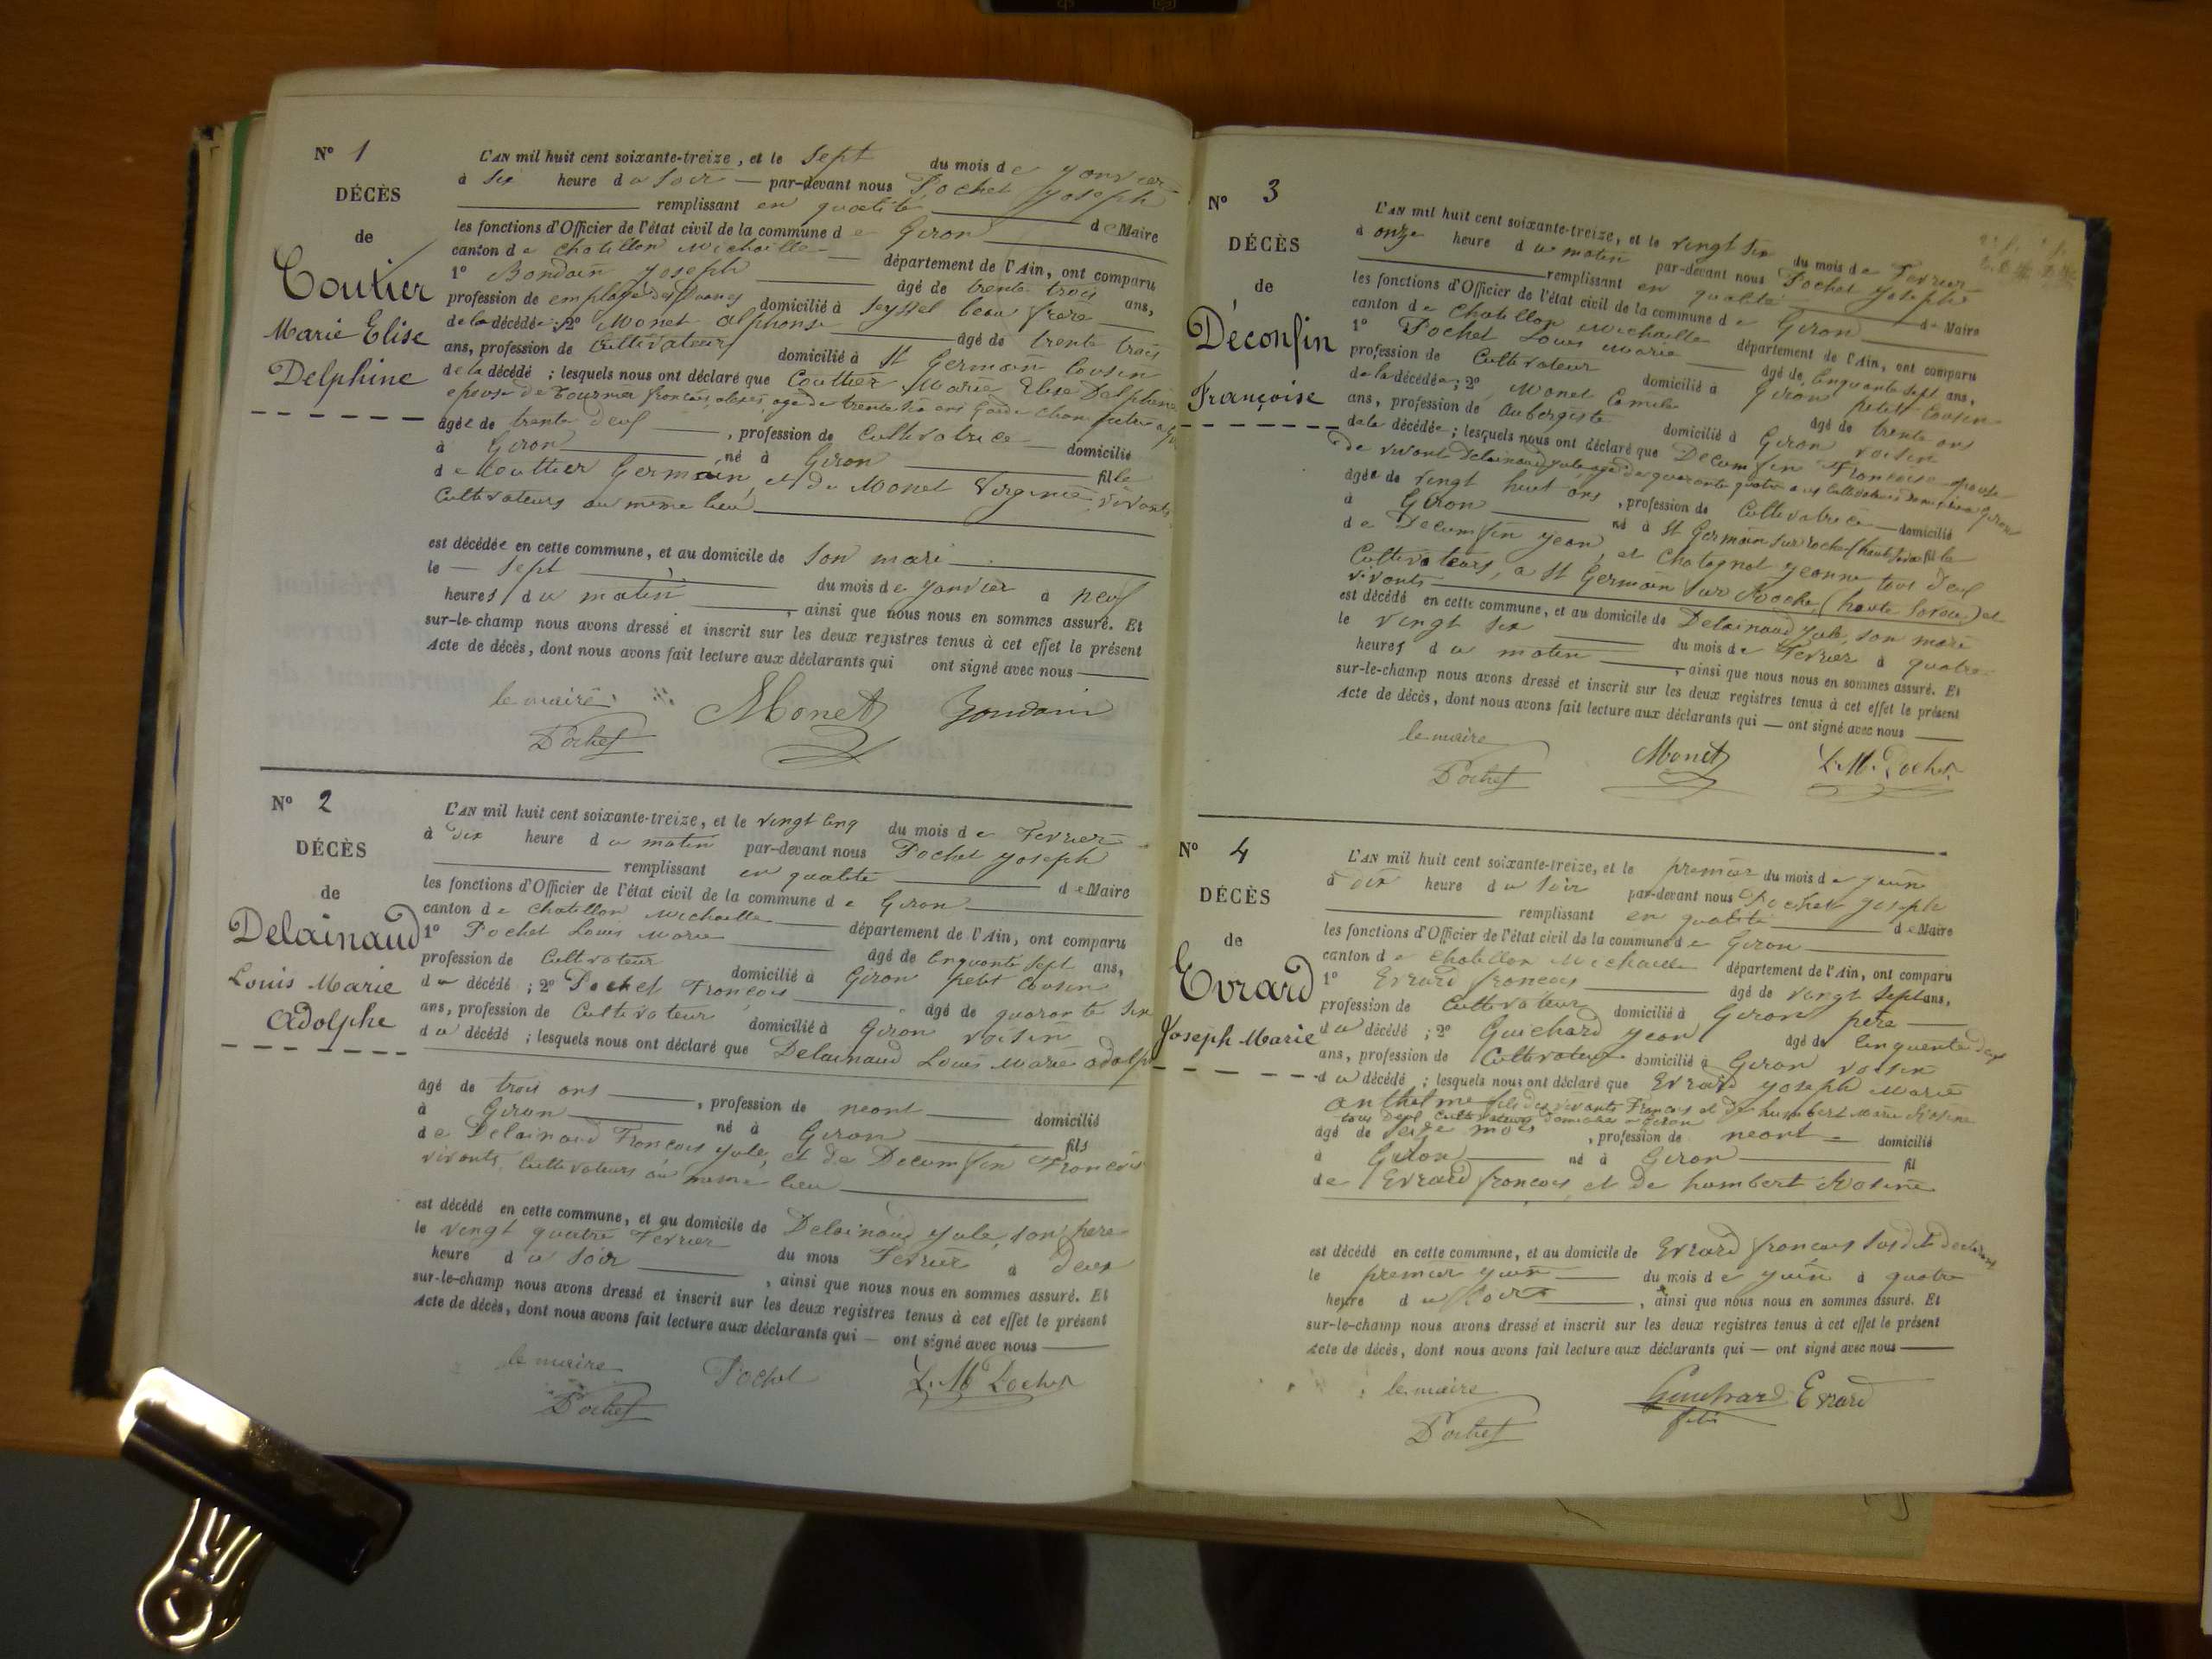 N° 1
DÉCÈS
de
Coutier
Marie Elise
Delphine
L'AN mil huit cent soixante-treize, et le sept du mois de Janvier
à six heure du soir par-devant nous Pochet Joseph
remplissant en qualité de Maire
les fonctions d'Officier de l'état civil de la commune de Giron
canton de Chatillon Michaille département de l'Ain, ont comparu
1° Joseph âgé de trente trois ans,
profession de employé des Douanes domicilié à Seyssel beau frere
de la décédée ; 2° Monet alphonse âgé de trente trois
ans, profession de Cultivateur domicilié à St Germain Cousin
de la décédé ; lesquels nous ont déclaré que Couttier Marie Elise Delphine
epouse de Tournier françois alexis, agé de trente six ans Garde
âgée de trente deuf , profession de Cultivatrice domicilié
à Giron né à Giron fille
de Couttier Germain, et de Monet Virginie vivants
Cultivateurs au meme lieu
est décédée en cette commune, et au domicile de son mari
le sept du mois de Janvier à neuf
heures du matin , ainsi que nous nous en sommes assuré. Et
sur-le-champ nous avons dressé et inscrit sur les deux registres tenus à cet effet le présent
Acte de décès, dont nous avons fait lecture aux déclarants qui ont signé avec nous
le maire Monet
Pochet
N° 2
DÉCÈS
de
Delainaud
Louis Marie
Adolphe
L'AN mil huit cent soixante-treize, et le vingt cinq du mois de Fevrier
à dix heure du matin par-devant nous Pochet Joseph
remplissant en qualité de Maire
les fonctions d'Officier de l'état civil de la commune de Giron
canton de Chatillon Michaille département de l'Ain, ont comparu
1° Pochet Louis Marie âgé de Cinquante sept ans,
profession de Cultivateur domicilié à Giron petit Cousin
du décédé ; 2° Pochet François âgé de quarante six
ans, profession de Cultivateur domicilié à Giron voisin
du décédé ; lesquels nous ont déclaré que Delainaud Louis Marie adolphe
âgé de trois ans , profession de neant domicilié
à Giron né à Giron fils
de Delainaud François Jule, et de Decumfin Françoise
vivants, Cultivateurs au meme lieu
est décédé en cette commune, et au domicile de Delainaud Jule, son pere
le vingt quatre Fevrier du mois Fevrier à deux
heure du soir , ainsi que nous nous en sommes assuré. Et
sur-le-champ nous avons dressé et inscrit sur les deux registres tenus à cet effet le présent
Acte de décès, dont nous avons fait lecture aux déclarants qui — ont signé avec nous
le maire Pochet L. M. Pochet
Pochet
N° 3
DÉCÈS
de
Déconfin
Françoise
L'AN mil huit cent soixante-treize, et le vingt six du mois de Fevrier
à onze heure du matin par-devant nous Pochet Joseph
remplissant en qualité de Maire
les fonctions d'Officier de l'état civil de la commune de Giron
canton de Chatillon Michaille département de l'Ain, ont comparu
1° Pochet Louis Marie âgé de Cinquante sept ans,
profession de Cultivateur domicilié à Giron petit Cousin
de la décédée ; 2° Monet Camile âgé de trente ans
ans, profession de Aubergiste domicilié à Giron voisin
de la décédée ; lesquels nous ont déclaré que Decumfin Françoise epouse
de vivant Delainaud Jule agé de quarante quatre ans Cultivateurs domicilié a Giron
âgée de vingt huit ans , profession de Cultivatrice domicilié
à Giron né à St Germain sur roche (haute Savoie) fille
de Decumfin Jean, et Chatagnat Jeanne tous deuf
Cultivateurs, a St Germain sur Roche (haute Savoie) et
vivants
est décédé en cette commune, et au domicile de Delainaud Jule, son mari
le vingt six du mois de Fevrier à quatre
heures du matin , ainsi que nous nous en sommes assuré. Et
sur-le-champ nous avons dressé et inscrit sur les deux registres tenus à cet effet le présent
Acte de décès, dont nous avons fait lecture aux déclarants qui — ont signé avec nous
le maire Monet L. M. Pochet
Pochet
N° 4
DÉCÈS
de
Evrard
Joseph Marie
L'AN mil huit cent soixante-treize, et le premier du mois de Juin
à dix heure du soir par-devant nous Pochet Joseph
remplissant en qualité de Maire
les fonctions d'Officier de l'état civil de la commune de Giron
canton de Chatillon Michaille département de l'Ain, ont comparu
1° Evrard francois âgé de vingt sept ans,
profession de Cultivateur domicilié à Giron père
du décédé ; 2° Guichard Jean âgé de Cinquente deux
ans, profession de Cultivateur domicilié à Giron voisin
du décédé ; lesquels nous ont déclaré que Evrard Joseph Marie
anthelme fils des vivants Francois et de humbert Marie Rosine
tous deuf Cultivateurs domiciliés a Giron
âgé de seize mois , profession de neant domicilié
à Giron né à Giron fil
de Evrard francois et de humbert Rosine
est décédé en cette commune, et au domicile de Evrard francois susdit declarant
le premier Juin du mois de Juin à quatre
heure du soir , ainsi que nous nous en sommes assuré. Et
sur-le-champ nous avons dressé et inscrit sur les deux registres tenus à cet effet le présent
Acte de décès, dont nous avons fait lecture aux déclarants qui — ont signé avec nous
le maire Guichard Evrard
Pochet